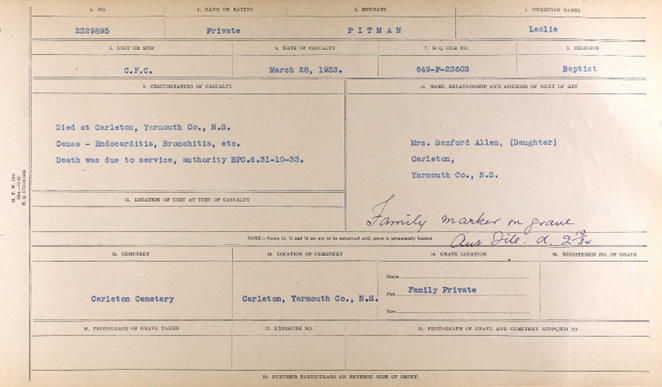 1. NO.
2. RANK OR RATING
3. SURNAME
4. CHRISTIAN NAMES
2329895
Private
PITMAN
Leslie
5. UNIT OR SHIP
6. DATE OF CASUALTY
7. H.Q. FILE NO.
8. RELIGION
C.F.C.
March 28, 1933.
649-P-23603
Baptist
9. CIRCUMSTANCES OF CASUALTY
10. NAME, RELATIONSHIP AND ADDRESS OF NEXT OF KIN
Died at Carleton, Yarmouth Co., N.S.
Cause - Endocarditis, Bronchitis, etc.
Death was due to service, authority BPC.d.31-10-33.
Mrs. Sanford Allen, (Daughter)
Carleton,
Yarmouth Co., N.S.
11. LOCATION OF UNIT AT TIME OF CASUALTY
Family marker on grave
NOTE—Items 12, 13 and 14 are not to be completed until grave is permanently located.
12. CEMETERY
13. LOCATION OF CEMETERY
14. GRAVE LOCATION
15. REGISTERED NO. OF GRAVE
Carleton Cemetery
Carleton, Yarmouth Co., N.S.
Grave
Plot Family Private
Row
16. PHOTOGRAPH OF GRAVE TAKEN
17. EXPOSURE NO.
18. PHOTOGRAPH OF GRAVE AND CEMETERY SUPPLIED TO
19. FURTHER PARTICULARS ON REVERSE SIDE OF SHEET.